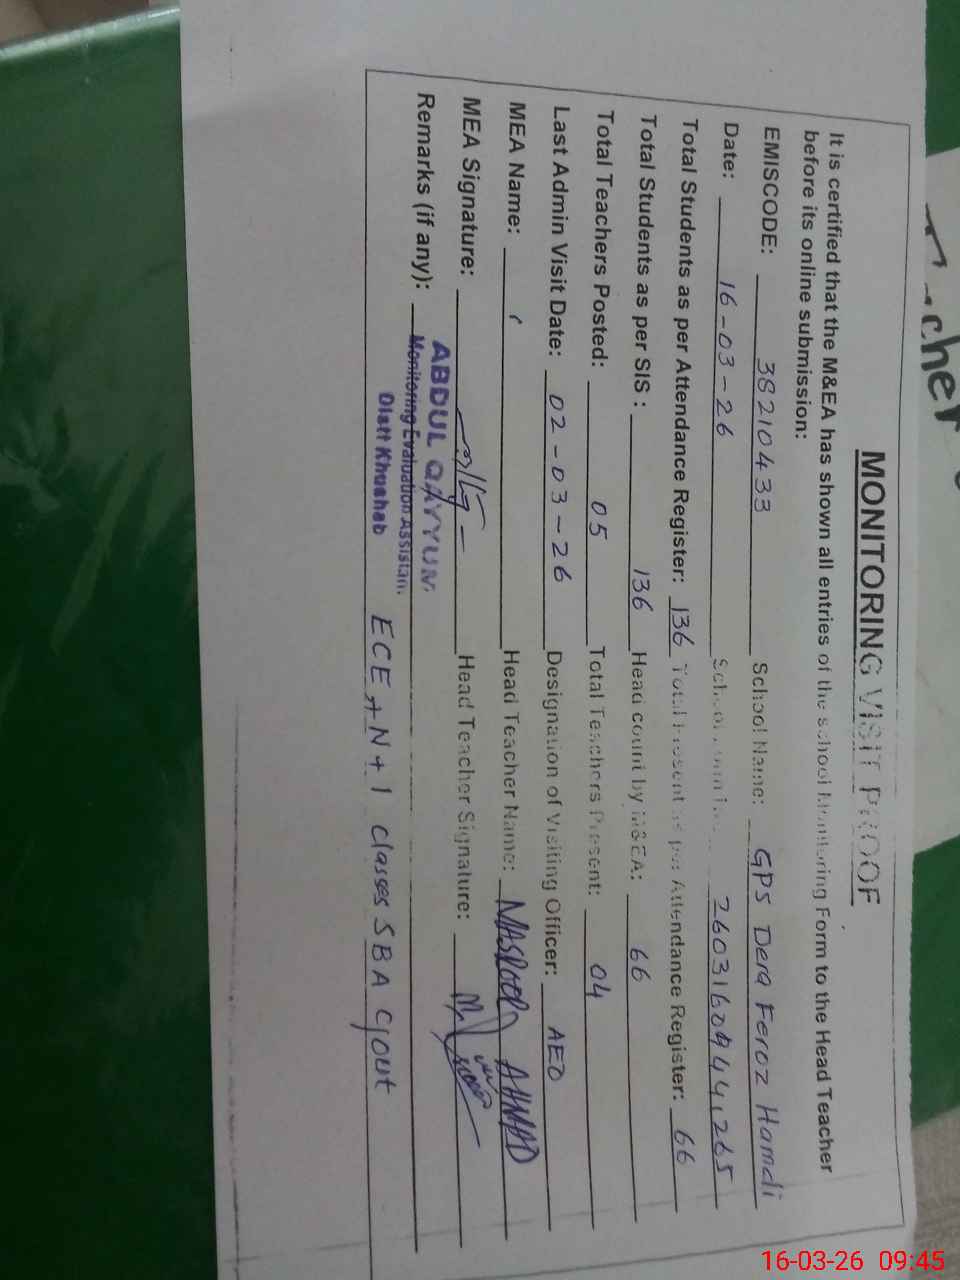 MONITORING VISIT PROOF
It is certified that the M&EA has shown all entries of the school Monitoring Form to the Head Teacher
before its online submission:
EMISCODE: 38210433 School Name: GPS Dera Feroz Hamdi
Date: 16-03-26 2603160944,265
Total Students as per Attendance Register: 136 Total Present as per Attendance Register: 66
Total Students as per SIS : 136 Head count by M&EA: 66
Total Teachers Posted: 05 Total Teachers Present: 04
Last Admin Visit Date: 02-03-26 Designation of Visiting Officer: AEO
MEA Name: Head Teacher Name: MASOOD AHMAD
MEA Signature: Head Teacher Signature:
Remarks (if any):
ABDUL QAYYUM
Monitoring Evaluation Assistan.
Distt Khushab
ECE, N+1 classes SBA
cher
16-03-26 09:45